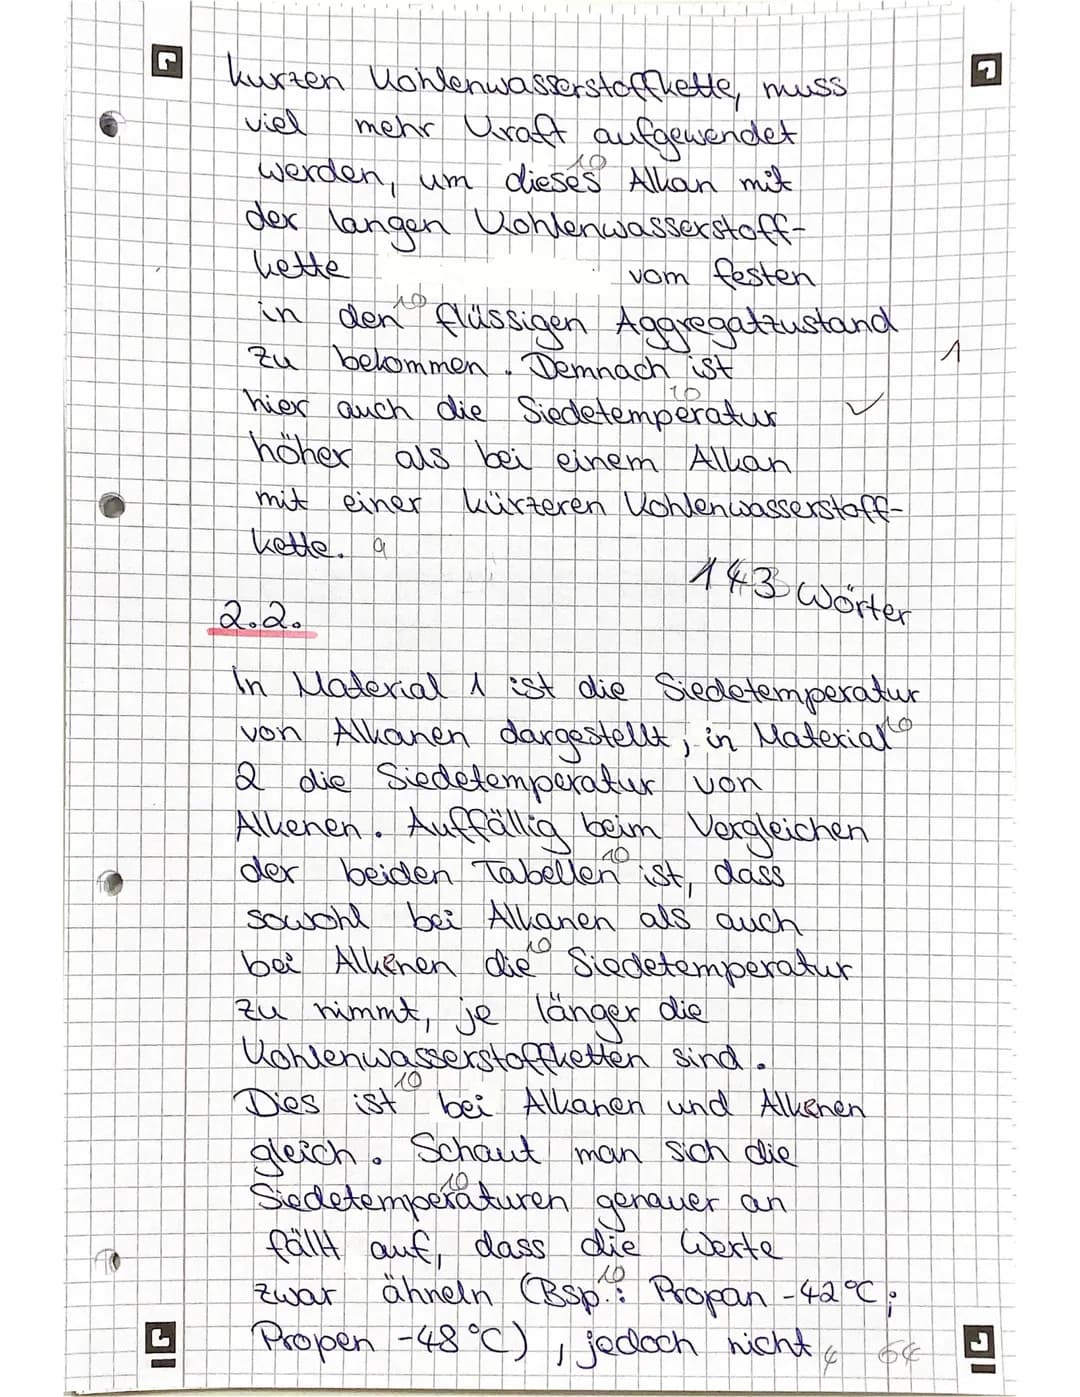 kurzen Kohlenwasserstoffkette, muss
viel mehr Kraft aufgewendet
10
werden, um dieses Alkan mit
der langen Kohlenwasserstoff-
kette vom festen
10
in den flüssigen Aggregatzustand
zu bekommen. Demnach ist 1
10
hier auch die Siedetemperatur ✓
höher als bei einem Alkan
mit einer kürzeren Kohlenwasserstoff-
kette. 9
143 Wörter
2.2.
In Material 1 ist die Siedetemperatur
von Alkanen dargestellt, in Material 10
2 die Siedetemperatur von
Alkenen. Auffällig beim Vergleichen
10
der beiden Tabellen ist, dass
sowohl bei Alkanen als auch
10
bei Alkenen die Siedetemperatur
zu nimmt, je länger die
Kohlenwasserstoffketten sind.
10
Dies ist bei Alkanen und Alkenen
gleich. Schaut man sich die
10
Siedetemperaturen genauer an
fällt auf, dass die Werte
10
zwar ähneln (Bsp.: Propan -42°C;
Propen -48°C), jedoch nicht 4 64